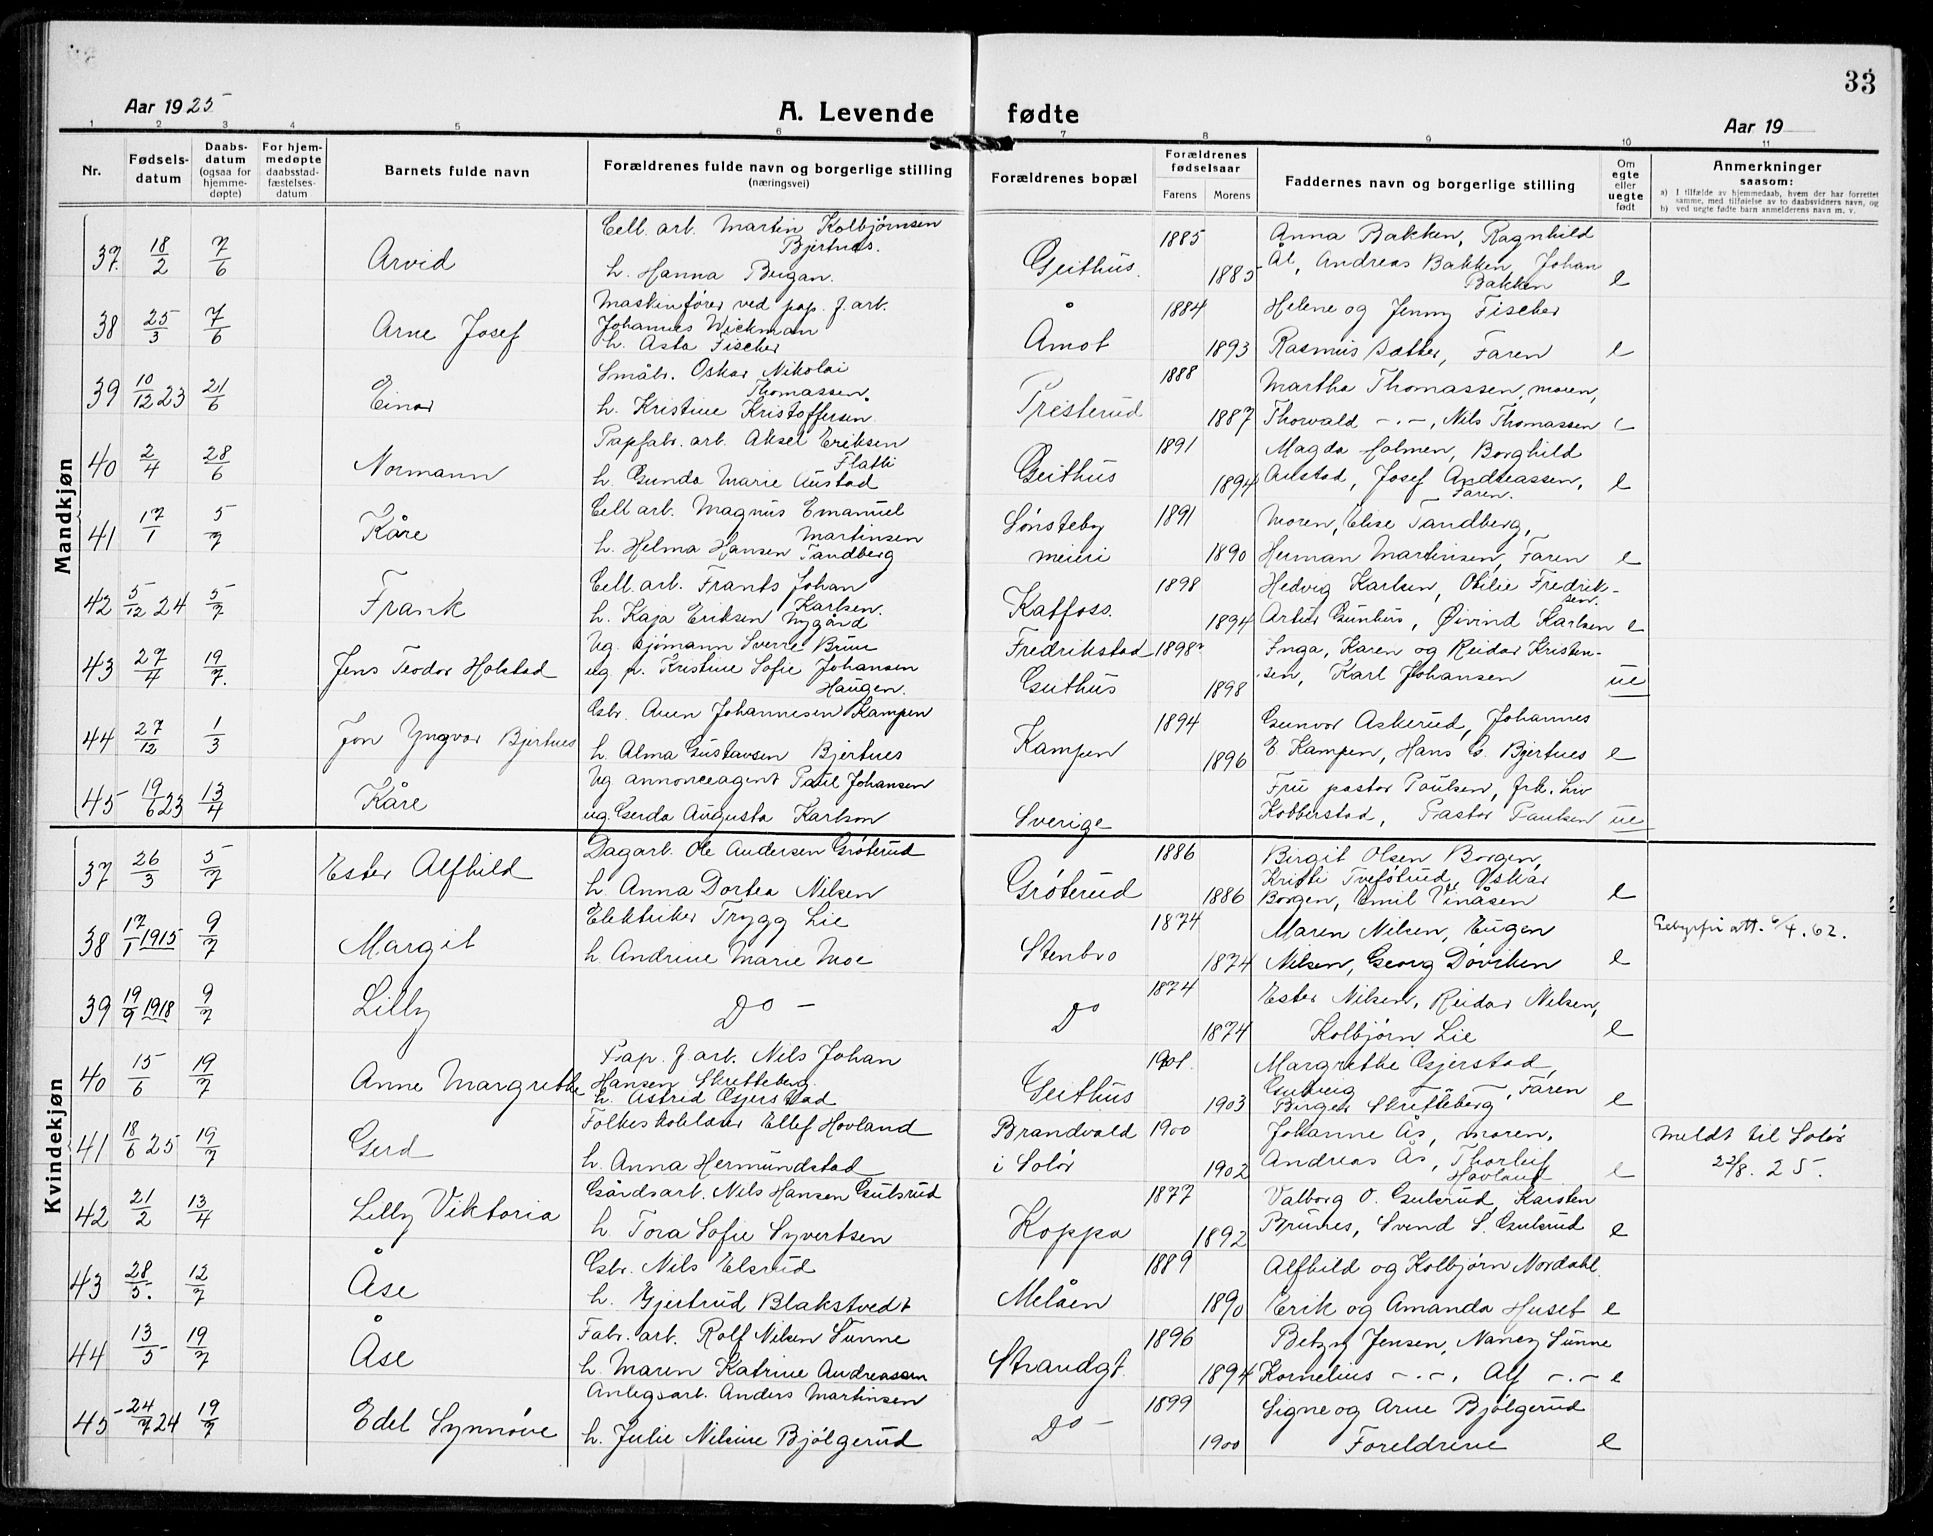 33
Aar 1925
A. Levende fødte
Aar 19
1 2 3 4 5 6 7 8 9 10 11
Nr.
Fødsels-
datum
Daabs-
datum
(ogsaa for
hjemme-
døpte)
For hjem-
medøpte
daabsstad-
fæstelses-
datum
Barnets fulde navn
Forældrenes fulde navn og borgerlige stilling
(næringsvei)
Forældrenes bopæl
Forældrenes
fødselsaar
Farens Morens
Faddernes navn og borgerlige stilling
Om
egte
eller
uegte
født
Anmerkninger
saasom:
a) I tilfælde av hjemmedaab, hvem der har forrettet
samme, med tilføielse av to daabsvidners navn, og
b) ved uegte fødte barn anmelderens navn m. v.
Mandkjøn
37. 18/2 7/6 Arvid
Cell. arb. Martin Kolbjørnsen
Bjertnes.
h. Hanna Bugan.
Geithus. 1885 1885
Anna Bakken, Ragnhild
Ål, Andreas Bakken, Johan
Bakken e
38 25/3 7/6 Arne Josef
Maskinfører ved pap. f. arb.
Johannes Wickman
h. Asta Fischer
Åmot 1884 1893
Helene og Jenny Fischer
Rasmus Sætter, Faren e
39 10/12 23 21/6 Einar
Småbr. Oskar Nikolai
Thomassen.
h. Kristine Kristoffersen.
Presterud 1888 1887
Martha Thomassen, moren,
Thorvald -.-, Nils Thomassen e
40 2/4 28/6 Normann
Papfabr. arb. Aksel Eriksen
Flatli
h. Gunda Marie Austad
Geithus 1891 1894
Magda Holmen, Borghild
Austad, Josef Andreassen,
Faren. e
41 17/1 5/7 Kåre
Cell arb. Magnus Emanuel
Martinsen
h. Helma Hansen Tandberg
Sønsteby
meieri 1891 1890
Moren, Elise Tandberg,
Herman Martinsen, Faren e
42 5/12 24 5/7 Frank
Cell. arb. Frants Johan
Karlsen.
h. Kaja Eriksen Nygård
Katfoss. 1898 1894
Hedvig Karlsen, Otilie Fredrik-
sen.
Artur Gunhus, Øivind Karlsen e
43 27/4 19/7. Jens Teodor Holstad
Ug. sjømann Sverre Bruu
ug. p. Kristine Sofie Johansen
Haugen.
Fredrikstad
Geithus 1898 1898
Inga, Karen og Reidar Kristen-
sen, Karl Johansen ue
44 27/12 1/3 Jon Yngvar Bjertnes
Gbr. Auen Johannesen Kampen
h. Alma Gustavsen Bjertnes
Kampen 1894 1896
Gunvor Askerud, Johannes
E. Kampen, Hans G. Bjertnes e
45 19/6 23 13/4 Kåre
Ug annonceagent Paul Johansen
ug. Gerda Augusta Karlson
Sverige
Fru pastor Paulsen, frk. Liv
Kobberstad, Pastor Paulsen ue
Kvindekjøn
37 26/3 5/7 Ester Alfhild
Dagarb. Ole Andersen Grøterud
h. Anna Dortea Nilsen
Grøterud 1886 1886
Birgit Olsen Borgen,
Kristi Tveføtrud, Oskar
Borgen, Emil Vinåsen e
38 17/1 1915 9/7 Margit
Elektriker Trygg Lie
h. Andrine Marie Moe
Stenbro 1874 1874
Maren Nilsen, Eugen
Nilsen, Georg Døviken e
Gebyrfri att. 6/4. 62.
39 19/9 1918 9/7 Lilly
Do -
Do 1874 1874
Ester Nilsen, Reidar Nilsen,
Kolbjørn Lie e
40 15/6 19/7 Anne Margrethe
Pap. f. arb. Nils Johan
Hansen Skretteberg.
h. Astrid Gjerstad
Geithus 1901. 1903
Margrethe Gjerstad,
Gudveig -"-, Faren
Birger Skretteberg e
41 18/6 25 19/7 Gerd
Folkeskolelærer Ellef Hovland
h. Anna Hermundstad
Brandvald
i Solør 1900 1902
Johanne Ås, moren,
Andreas Ås, Thorleif
Hovland e
Meldt til Solør
22/8. 25.
42 21/2 13/4 Lilly Viktoria
Gårdsarb. Nils Hansen Gulsrud
h. Tora Sofie Syvertsen
Koppa 1877 1892
Valborg O. Gulsrud, Karsten
Brunes, Svend S. Gulsrud e
43 28/5. 12/7 Åse
Gbr. Nils Elsrud
h. Gjertrud Blakstvedt
Melåen 1889 1890
Alfhild og Kolbjørn Nordahl.
Erik og Amanda Huset e
44 13/5 19/7 Åse
Fabr. arb. Rolf Nilsen Sunne
h. Maren Katrine Andreassen
Strandgt. 1896 1894
Betzy Jensen, Nancy Sunne
Kornelius -.-, Alf -.- e
45 24/7 24 19/7 Edel Synnøve
Anlegsarb. Anders Martinsen
h. Julie Nilsine Bjølgerud
Do - 1899 1900
Signe og Arne Bjølgerud
Foreldrene e